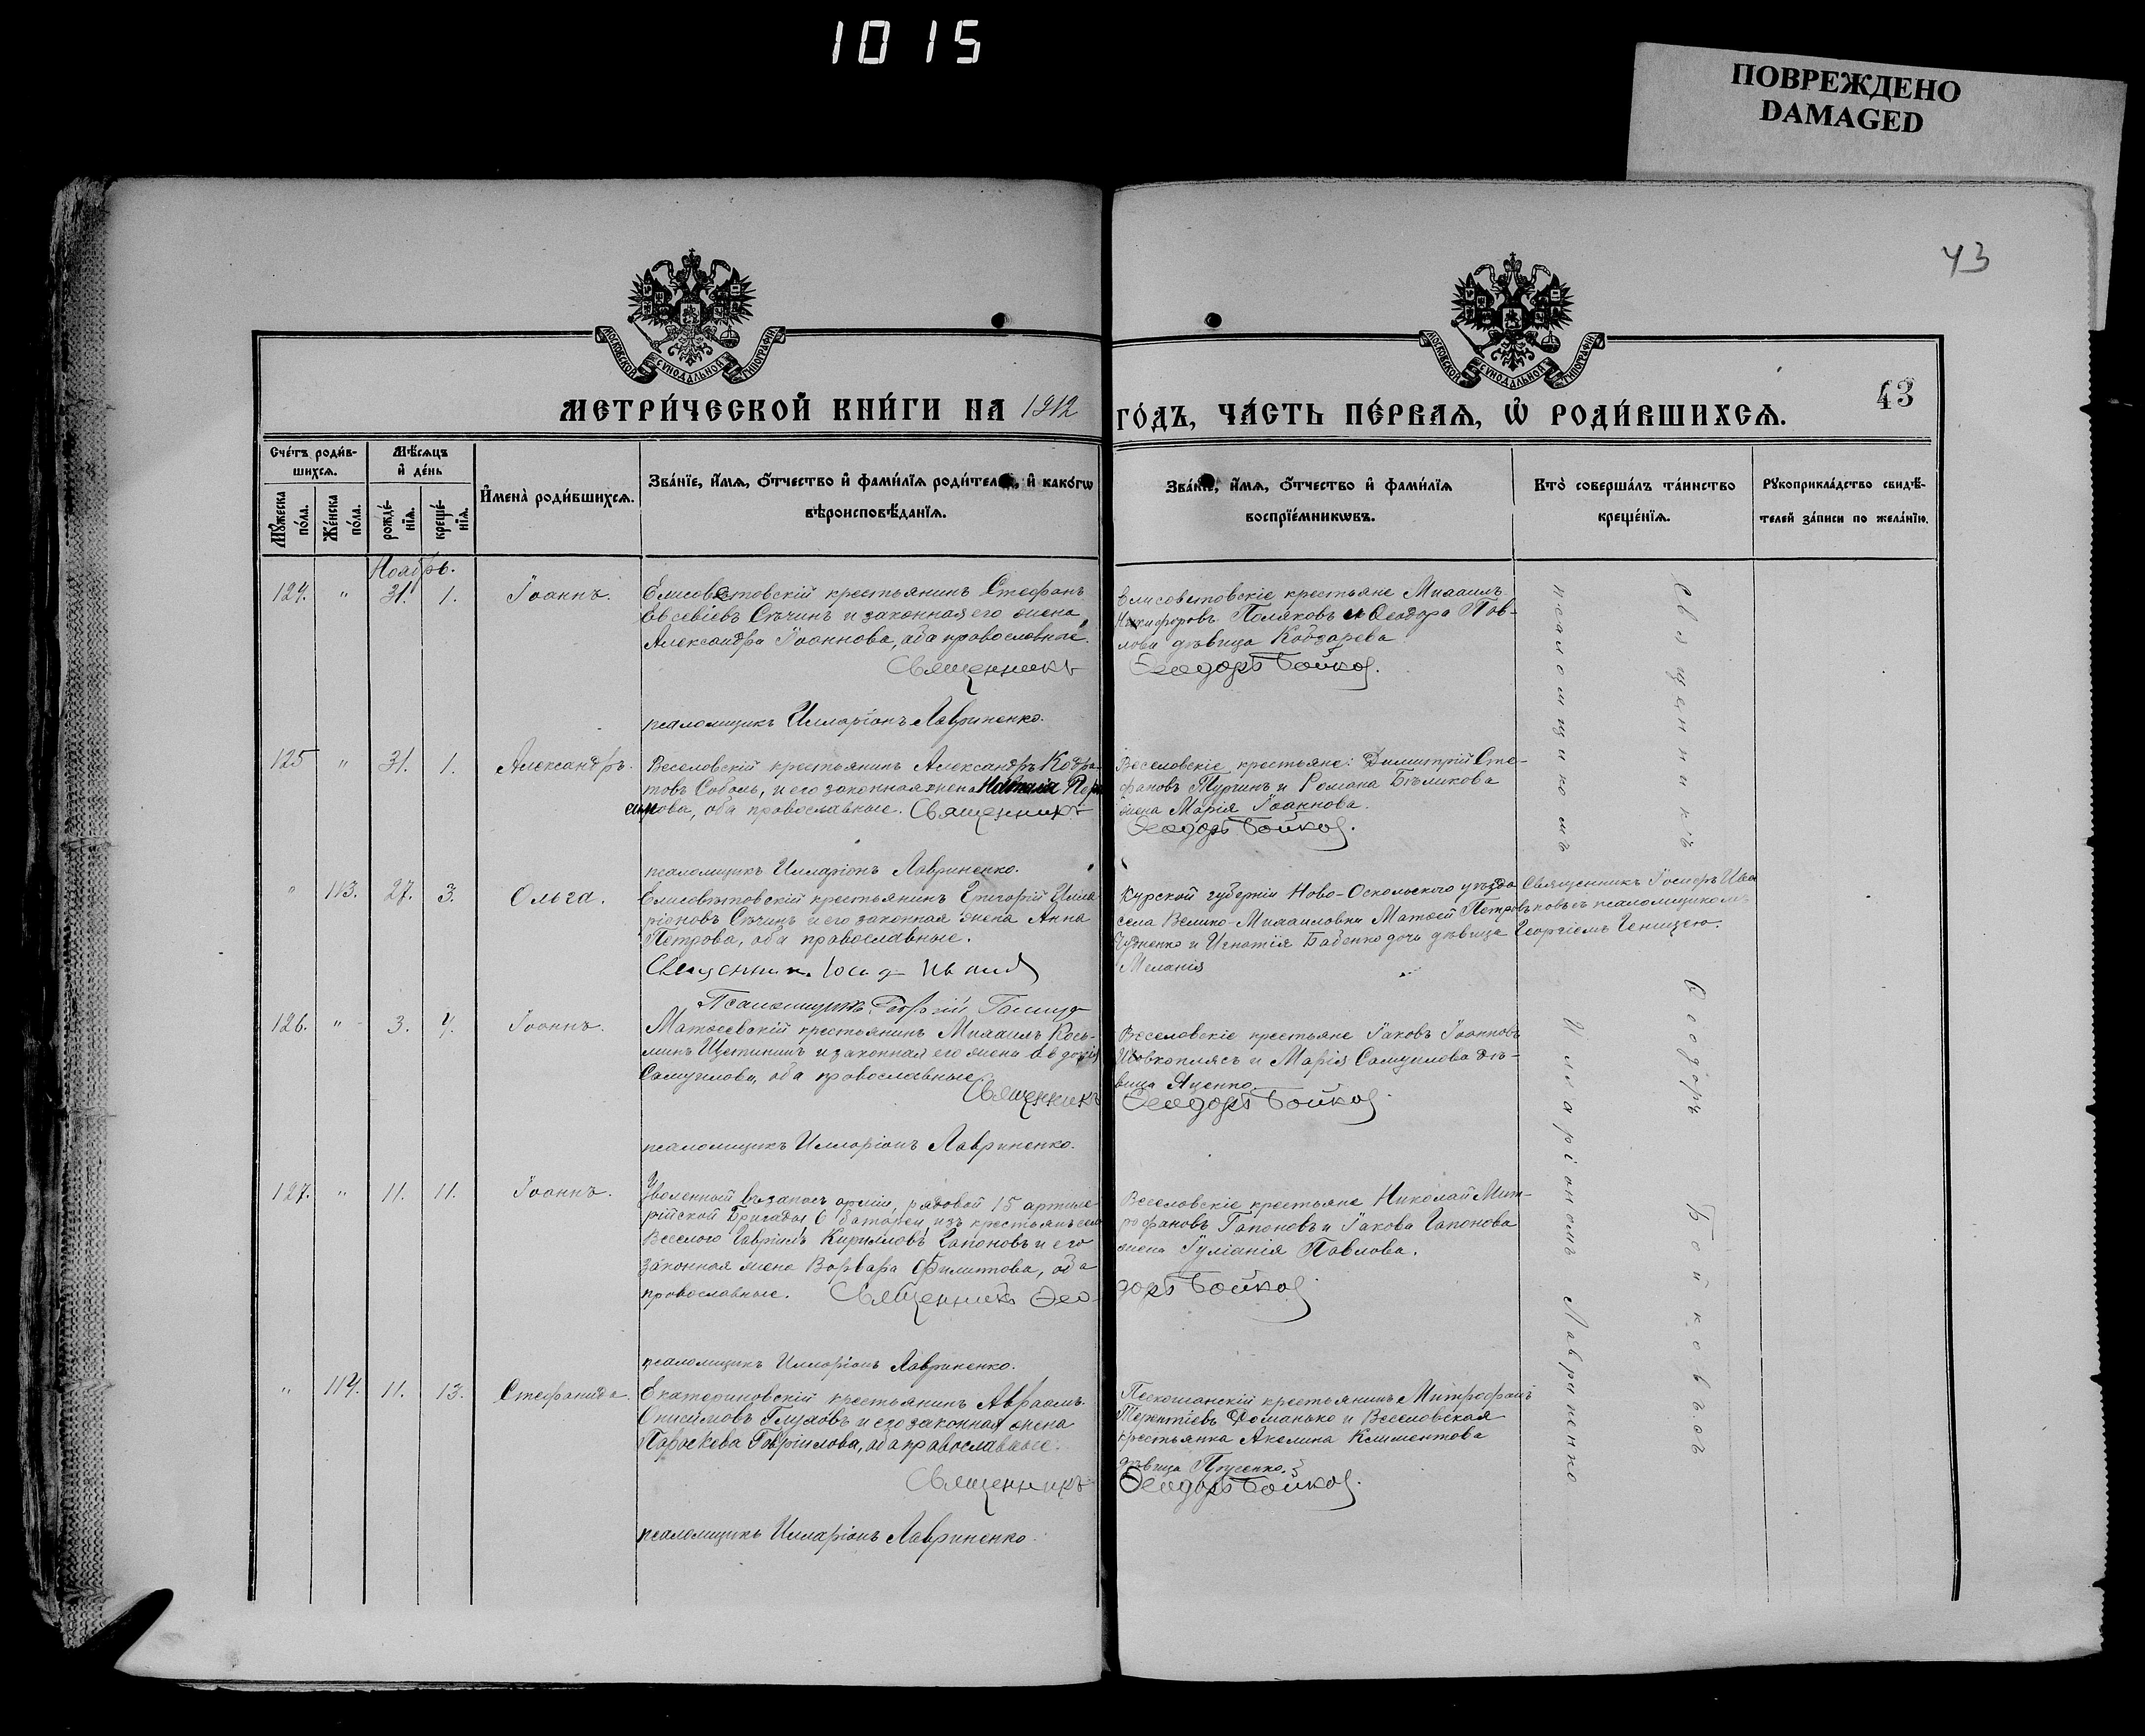 1015
ПОВРЕЖДЕНО
DAMAGED
43
МОСКОВСКОЙ СѴНОДАЛЬНОЙ ТИПОГРАФІИ
МОСКОВСКОЙ СѴНОДАЛЬНОЙ ТИПОГРАФІИ
43
МЕТРИ́ЧЕСКОЙ КНИ́ГИ НА 1912
ГО́ДЪ, ЧА́СТЬ ПЕ́РВАЯ, Ѡ҆ РОДИ́ВШИХСЯ.
Сче́тъ роди́в-
шихся.
Мѣ́сяцъ
и҆ де́нь
Мꙋ́жеска
по́ла.
Же́нска
по́ла.
рожде́-
нїя.
креще́-
нїя.
И҆мена̀ роди́вшихся.
Зва́нїе, и҆́мя, ѻ҆́тчество и҆ фами́лїя роди́телей, и҆ како́гѡ
вѣроисповѣ́данїя.
Зва́нїе, и҆́мя, ѻ҆́тчество и҆ фами́лїя
воспрїе́мникѡвъ.
Кто̀ соверша́лъ та́инство
креще́нїя.
Рꙋкоприкла́дство свидѣ́-
телей за́писи по жела́нїю.
Ноябрь.
124. " 31. 1. Іоаннъ.
Елисоветовскій крестьянинъ Стефанъ
Евсевіевъ Сѣчинъ и законная его жена
Александра Іоаннова, оба православные.
Священникъ
псаломщикъ Илларіонъ Лавриненко.
Елисоветовскіе крестьяне Михаилъ
Никифоровъ Поляковъ и Ѳеодора Пав-
лова дѣвица Кобзарева
Ѳеодоръ Бойковъ.
125 " 31. 1. Александръ.
Веселовскій крестьянинъ Александръ Кодра-
товъ Соболь, и его законная жена Наталія
оба православные. Священникъ
псаломщикъ Илларіонъ Лавриненко.
Веселовскіе крестьяне: Димитрій Сте-
фановъ Тургинъ и Романа Бѣликова
жена Марія Іоаннова.
Ѳеодоръ Бойковъ.
" 113. 27. 3. Ольга.
Елисоветовскій крестьянинъ Григорій Илла-
ріоновъ Сѣчинъ и его законная жена Анна
Петрова, оба православные.
Священникъ Іосифъ
Псаломщикъ Георгій
Курской губерніи Ново-Оскольскаго уѣзда
села Велико-Михаиловки Матѳей Петровъ
и Игнатія Бабенко дочь дѣвица
Меланія
Священникъ Іосифъ Ива-
новъ съ псаломщикомъ
Георгіемъ
126. " 3. 4. Іоаннъ.
Матвеевскій крестьянинъ Михаилъ Кось-
минъ Щетининъ и законная его жена Авдотія
Самуилова, оба православные.
Священникъ
псаломщикъ Илларіонъ Лавриненко.
Веселовскіе крестьяне Іаковъ Іоанновъ
Шовкоплясъ и Марія Самуилова дѣ-
вица Яценко.
Ѳеодоръ Бойковъ.
127. " 11. 11. Іоаннъ.
Уволенный въ запасъ арміи, рядовой 15 артиле-
рійской Бригады 6 батареи, изъ крестьянъ села
Веселого Гавріилъ Кирилловъ Гапоновъ и его
законная жена Варвара Филиппова, оба
православные. Священникъ Ѳео-
псаломщикъ Илларіонъ Лавриненко.
Веселовскіе крестьяне Николай Мит-
рофановъ Гапоновъ и Іакова Гапонова
жена Іуліанія Павлова.
доръ Бойковъ
" 114. 11. 13. Стефанида.
Екатериновскій крестьянинъ Авраамъ
Онисимовъ Глуховъ и его законная жена
Параскева Гавріилова, оба православные.
Священникъ
псаломщикъ Илларіонъ Лавриненко.
крестьянинъ Митрофанъ
Терентіевъ Романько и Веселовская
крестьянка Акелина Климентова
дѣвица
Ѳеодоръ Бойковъ.
Священникъ Ѳеодоръ Бойковъ съ
псаломщикомъ Илларіономъ Лавриненко